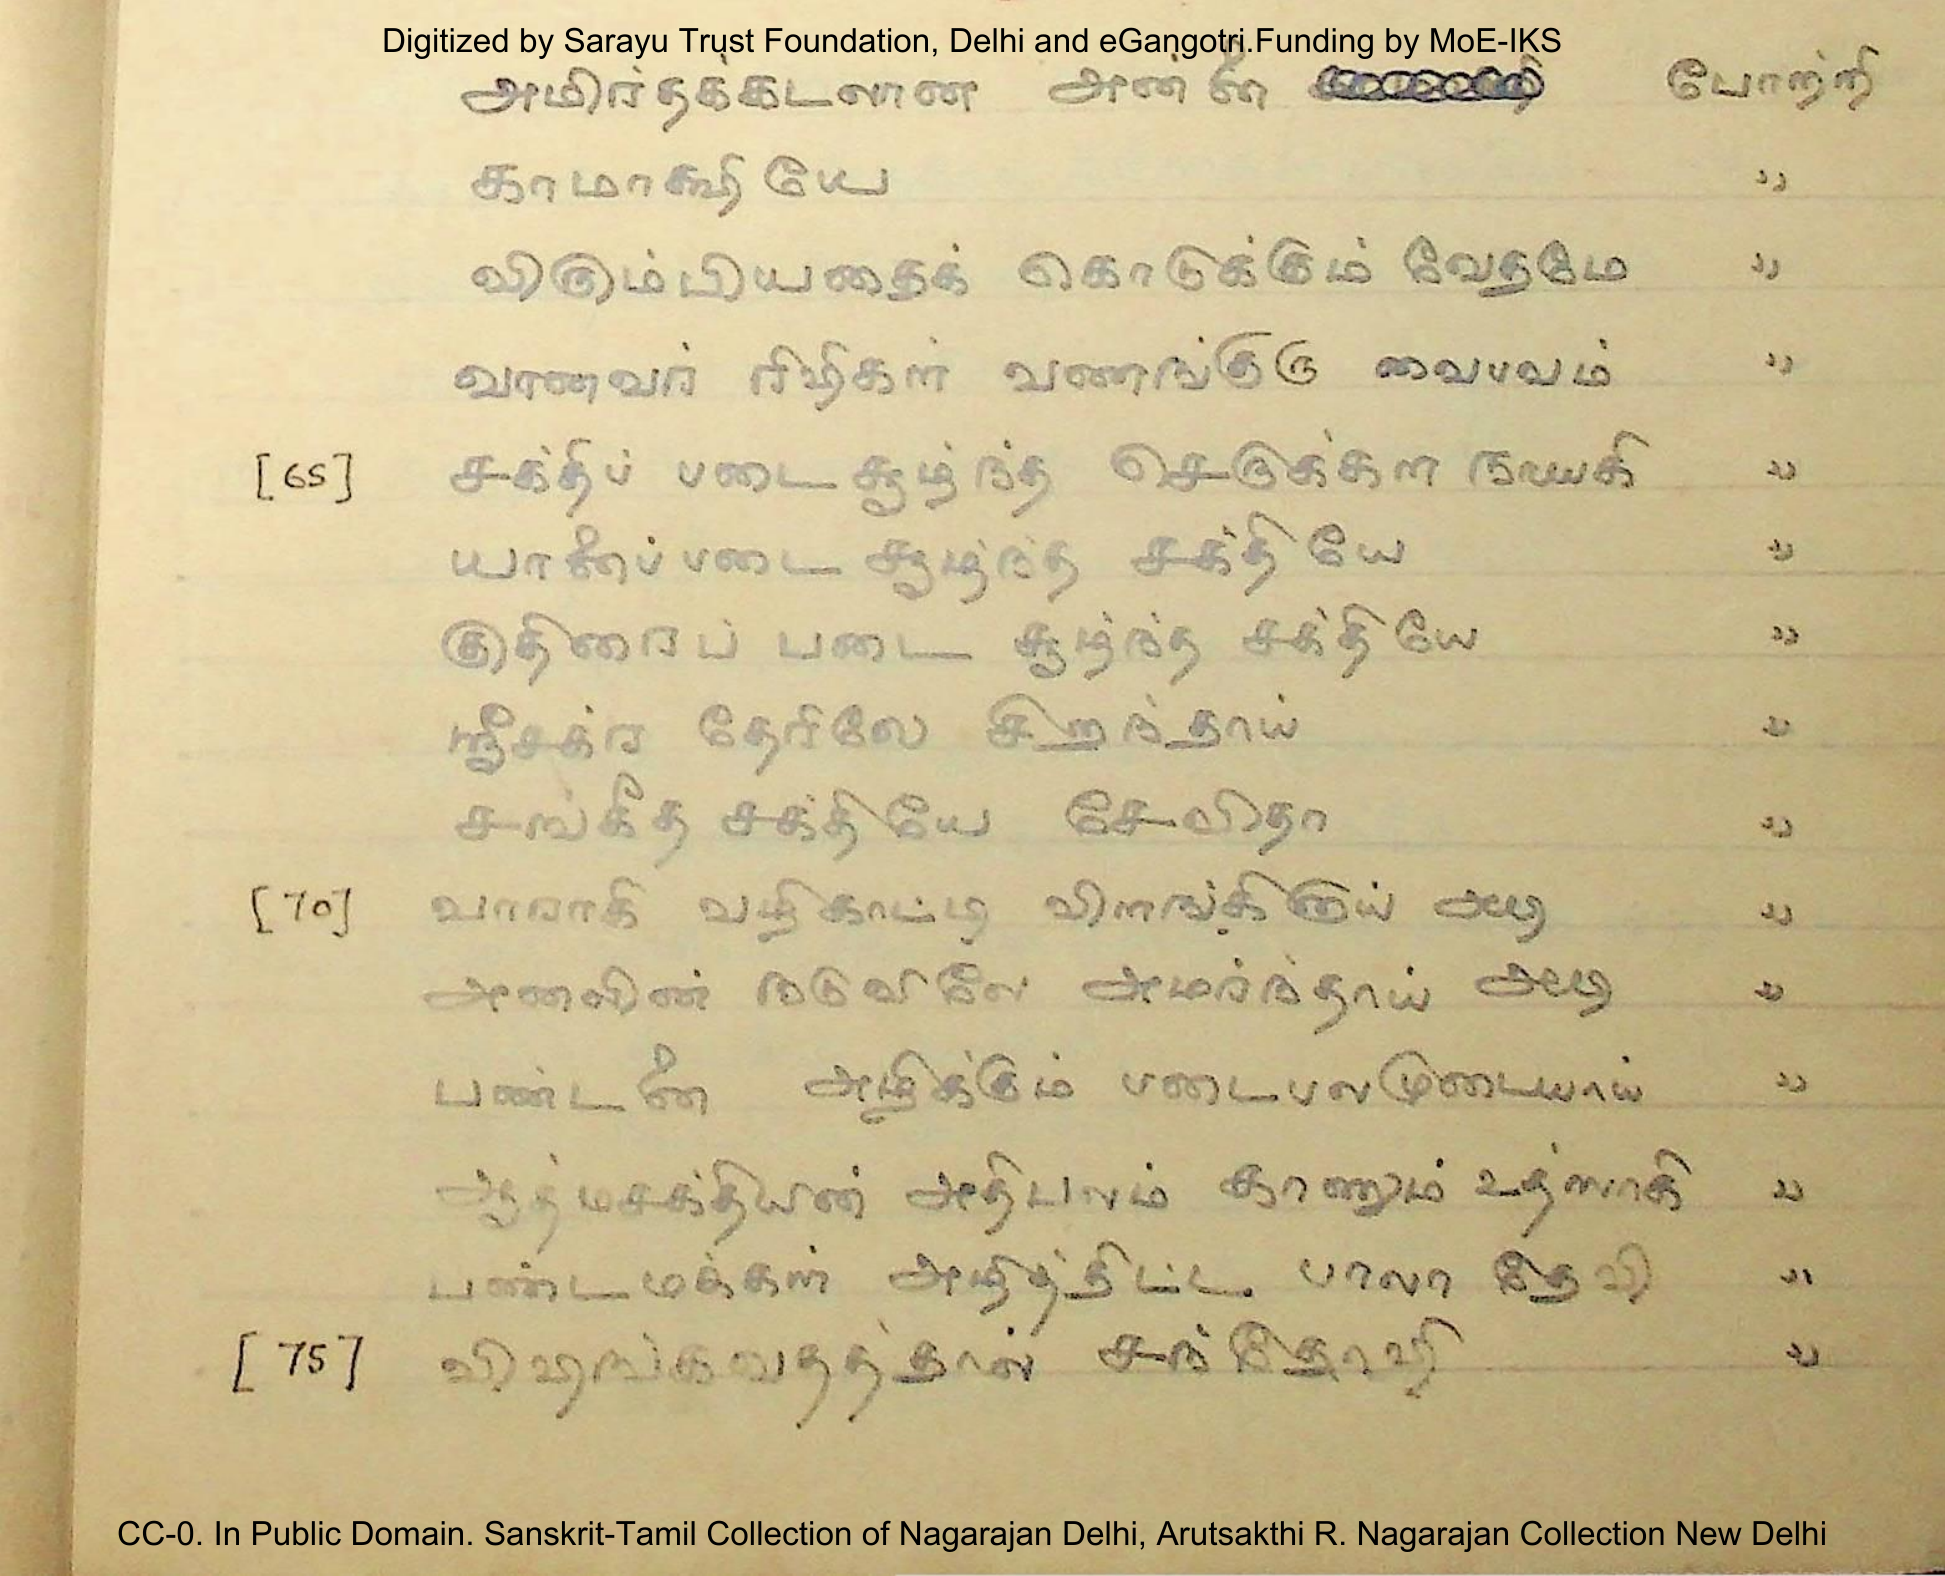 Digitized by Sarayu Trust Foundation, Delhi and eGangotri.Funding by MoE-IKS
அமிர்தக்கடலான அன்னை போற்றி
காமாக்ஷியே "
விரும்பியதைக் கொடுக்கும் வேதமே "
வானவர் ரிஷிகள் வணங்குரு வைபவம் "
[65] சக்திப் படை சூழ்ந்த செருக்கள நாயகி "
யானைப்படை சூழ்ந்த சக்தியே "
குதிரைப் படை சூழ்ந்த சக்தியே "
ஸ்ரீசக்ர தேரிலே சிறந்தாய் "
சங்கீத சக்தியே சேவிதா "
[70] வாராகி வழிகாட்டி விளங்கினாய் அடி "
அனலின் நடுவிலே அமர்ந்தாய் அடி "
பண்டனை அழிக்கும் படைபலமுடையாய் "
ஆத்மசக்தியின் அதிபலம் காணும் உத்ஸாகி "
பண்டமக்கள் அழித்திட்ட பாலா தேவி "
[75] விஷங்கவதத்தால் சந்தோஷி "
CC-0. In Public Domain. Sanskrit-Tamil Collection of Nagarajan Delhi, Arutsakthi R. Nagarajan Collection New Delhi